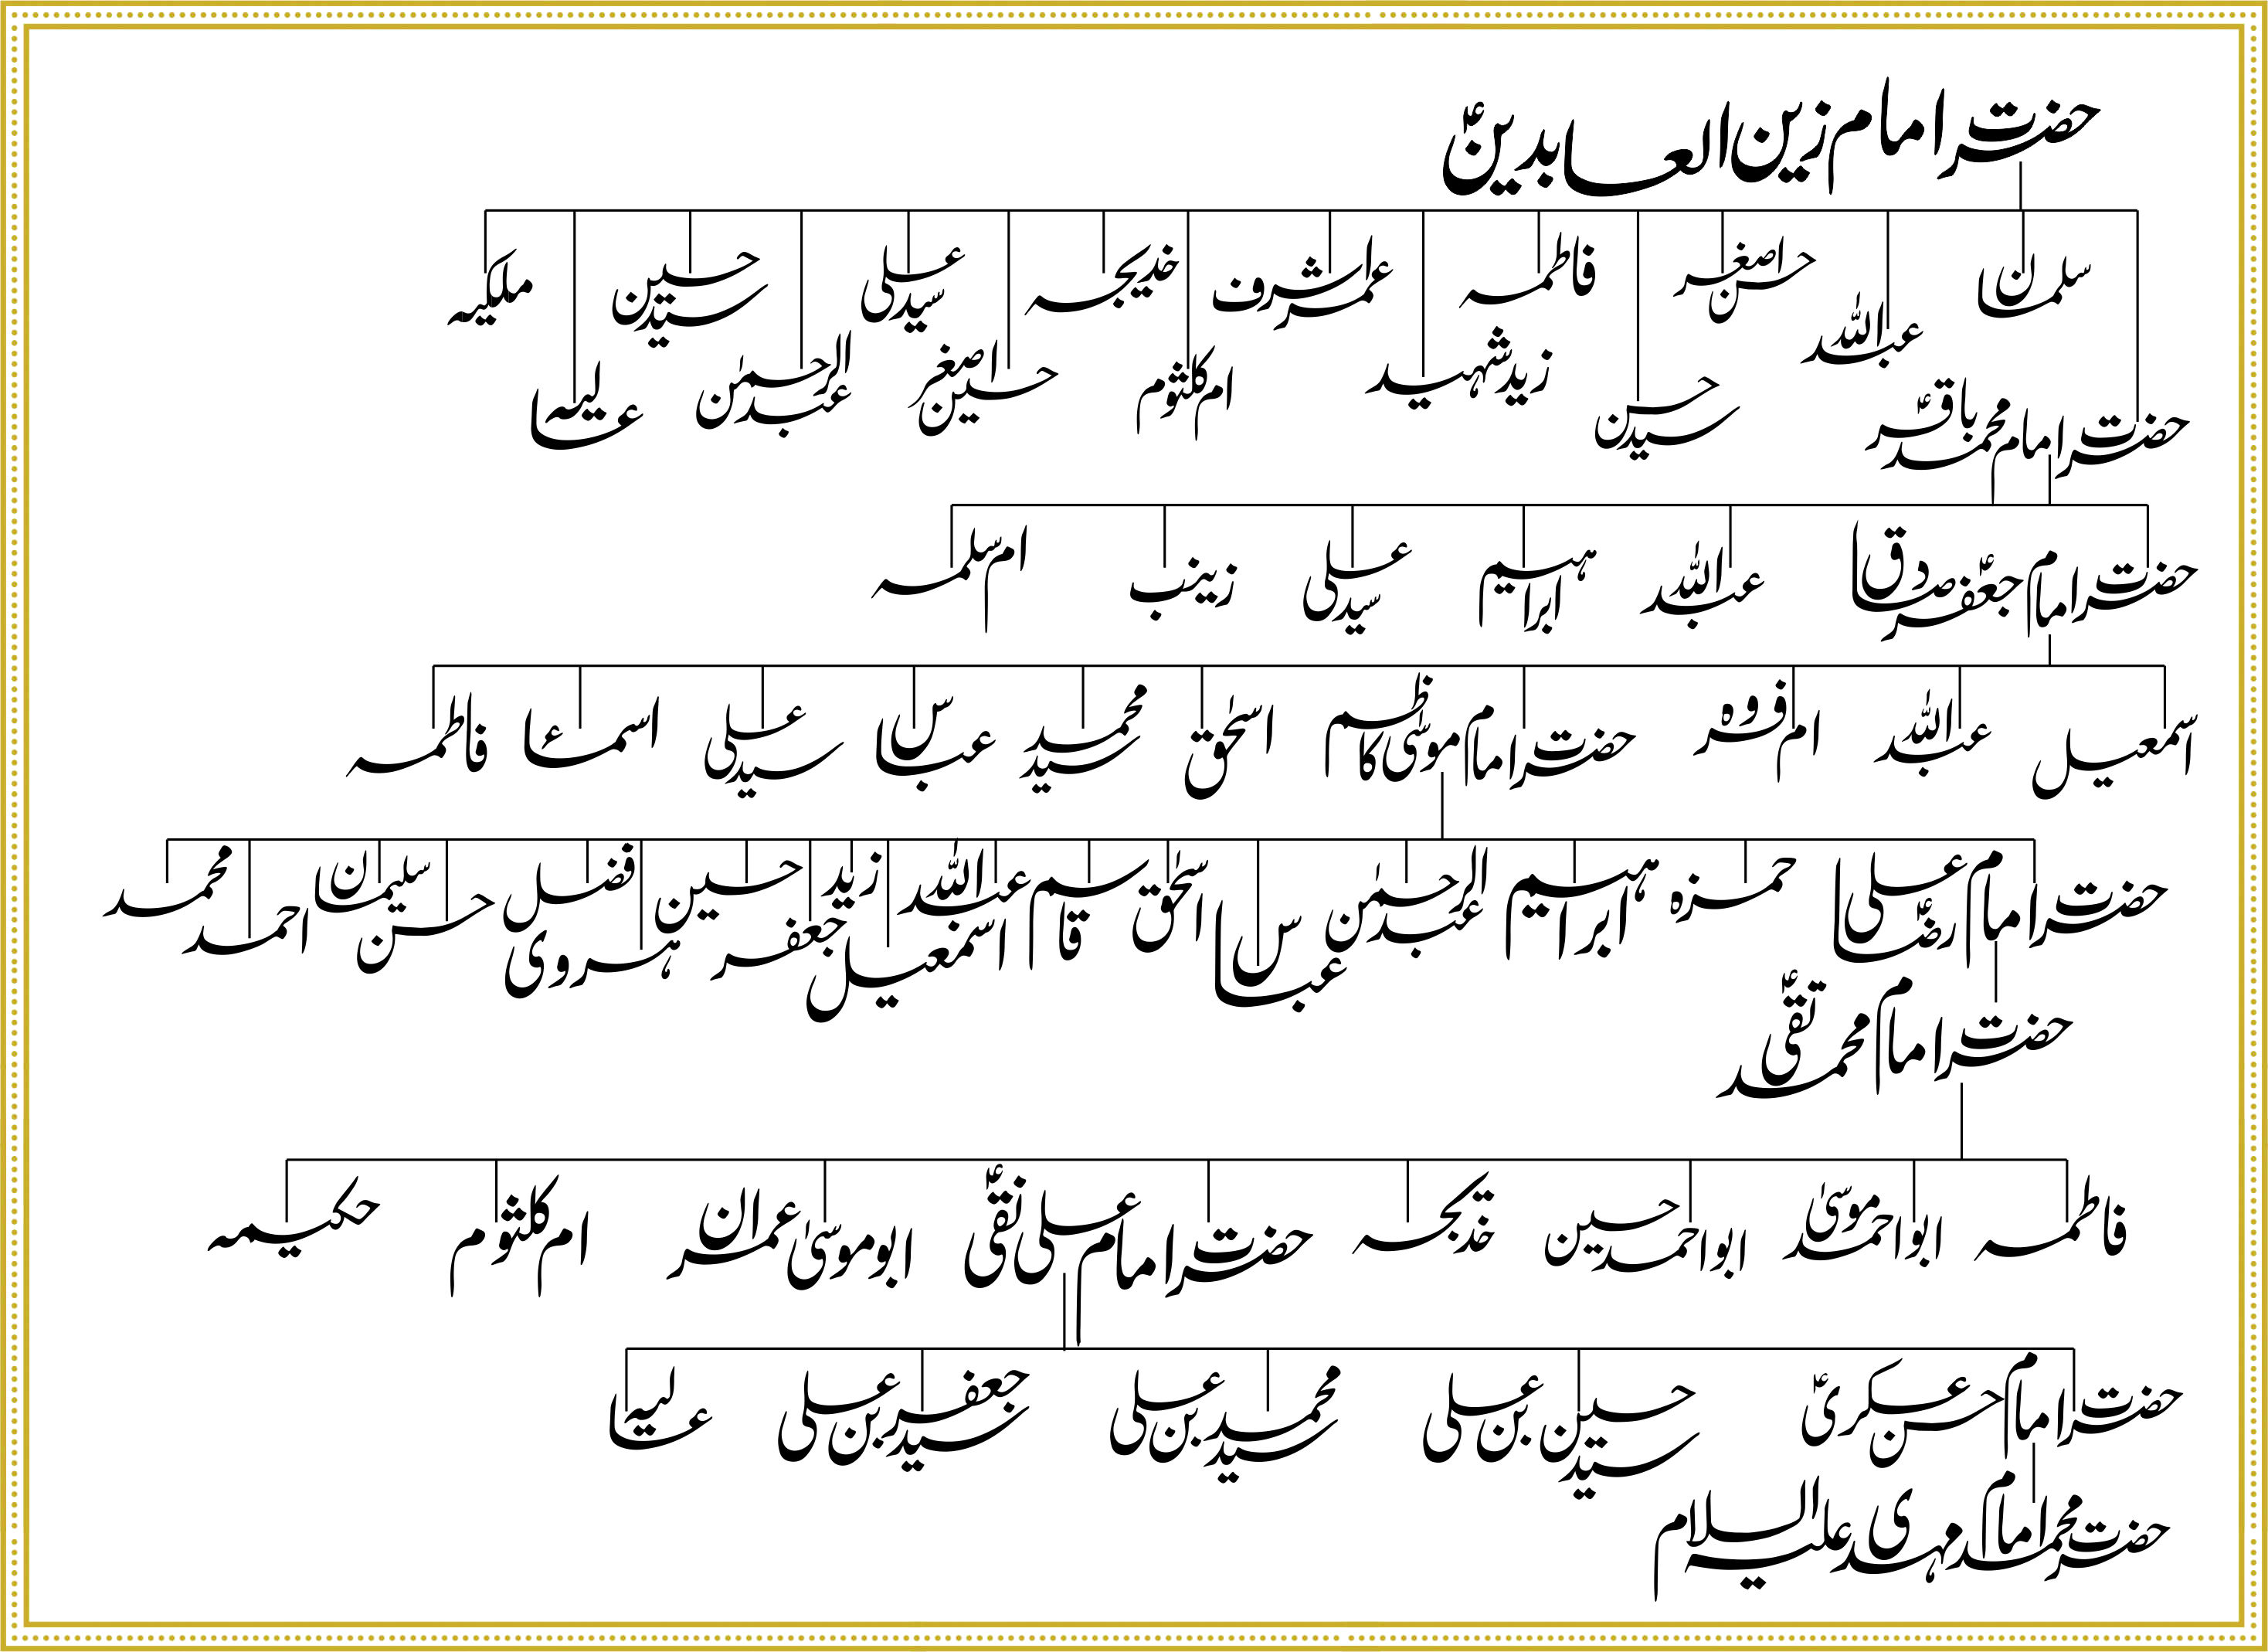 حضرت امام زین العابدینؑ
سلمان عبداللہ حسن اصغر فاطمہ عمر اشرف خدیجہ سید علی سید حسین ملکیہ
حضرت امام محمد باقرؑ سید حسن زید شہید ام کلثوم حسین اصغر عبدالرحمٰن عالیہ
حضرت امام جعفر صادقؑ عبداللہ ابراہیم سید علی زینب ام سلمہ
اسمعیل عبداللہ ام فروہ حضرت امام موسیٰ کاظم اسحٰق سید محمد عباس سید علی اسمائ فاطمہ
حضرت امام علی رضاؑ حمزہ ابراہیم عبدالرحمٰن عباس اسحٰق قاسم عبداللہ زید حسین فضل سلیمان محمد
اسمٰعیل جعفر ہروی حسن احمد
حضرت امام محمد تقیؑ
فاطمہ ابو احمد موسیٰ ابو احمد حسین خدتجہ حضرت امام علی نقیؑ ابو موسیٰ عمران ام کلثوم حکیمہ
حضرت امام حسن عسکریؑ سید حسین بن علی سید محمد بن علی سید جعفر بن علی عالیہ
حضرت امام محمد مہدی علیہ السلام